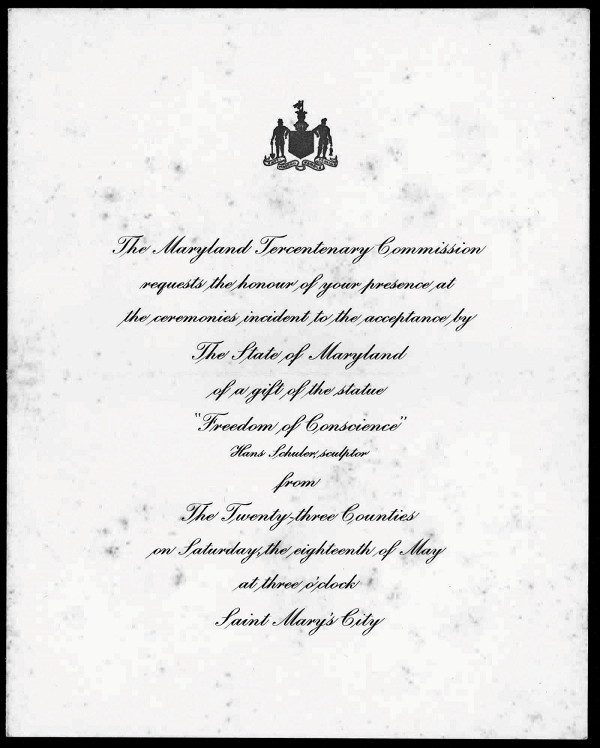 The Maryland Tercentenary Commission
requests the honour of your presence at
the ceremonies incident to the acceptance by
The State of Maryland
of a gift of the statue
"Freedom of Conscience"
Hans Schuler, sculptor
from
The Twenty-three Counties
on Saturday, the eighteenth of May
at three o'clock
Saint Mary's City